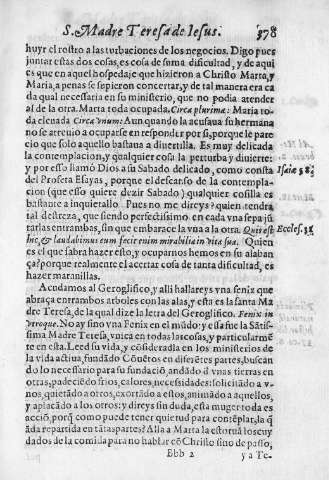 S. Madre Teresa de Iesus. 378
huyr el rostro a las turbaciones de los negocios. Digo pues
juntar estas dos cosas, es cosa de suma dificultad, y de aqui
es que en aquel hospedaje que hizieron a Christo Marta, y
Maria, a penas se supieron concertar, y de tal manera era ca
da qual necessaria en su ministerio, que no podia atender
al de la otra. Marta toda ocupada. Circa plurima: Maria to
da eleuada Circa vnum: Aun quando la acusaua su hermana
no se atreuio a ocuparse en responder por si, porque le pare
cio que solo aquello bastaua a diuertilla. Es muy delicada
la contemplacion, y qualquier cosa la perturba y diuierte:
y por esso llamó Dios a su Sabado delicado, como consta
del Profeta Esayas, porque el descanso de la contempla-
cion (que esso quiere dezir Sabado) qualquier cosilla es
bastante a inquietallo. Pues no me direys? quien tendra
tal destreza, que siendo perfectissimo en cada vna sepa jũ
tarlas entrambas, sin que embarace la vna a la otra. Quis est
hic, & laudabimus eum fecit enim mirabilia in vita sua. Quien
es el que sabra hazer esto, y ocuparnos hemos en su alaban
ça? porque realmente el acertar cosa de tanta dificultad, es
hazer marauillas.
Isaie 58.
Eccles. 31
Acudamos al Geroglifico, y alli hallareys vna fenix que
abraça entrambos arboles con las alas, y esta es la santa Ma
dre Teresa, de la qual dize la letra del Geroglifico. Fenix in
vtroque. No ay sino vna Fenix en el mũdo: y essa fue la Sãtis-
sima Madre Teresa, vnica en todas las cosas, y particularmẽ
te en esta. Leed su vida, y cõsideradla en los ministerios de
la vida actiua, fundãdo Cõuẽtos en diferẽtes partes, buscan
do lo necessario para su fundaciõ, andãdo d vnas tierras en
otras, padeciẽdo frios, calores, necessidades: solicitãdo a v-
nos, quietãdo a otros, exortãdo a estos, animando a aquellos,
y aplacãdo a los otros: y direys sin duda, essa muger toda es
acciõ, porq̃ como puede tener quietud para contẽplar, la q̃
ãda repartida en tãtas partes? Alla a Marta la estoruã los cuy
dados de la comida para no hablar cõ Christo sino de passo,
Bbb 2 y a Te-